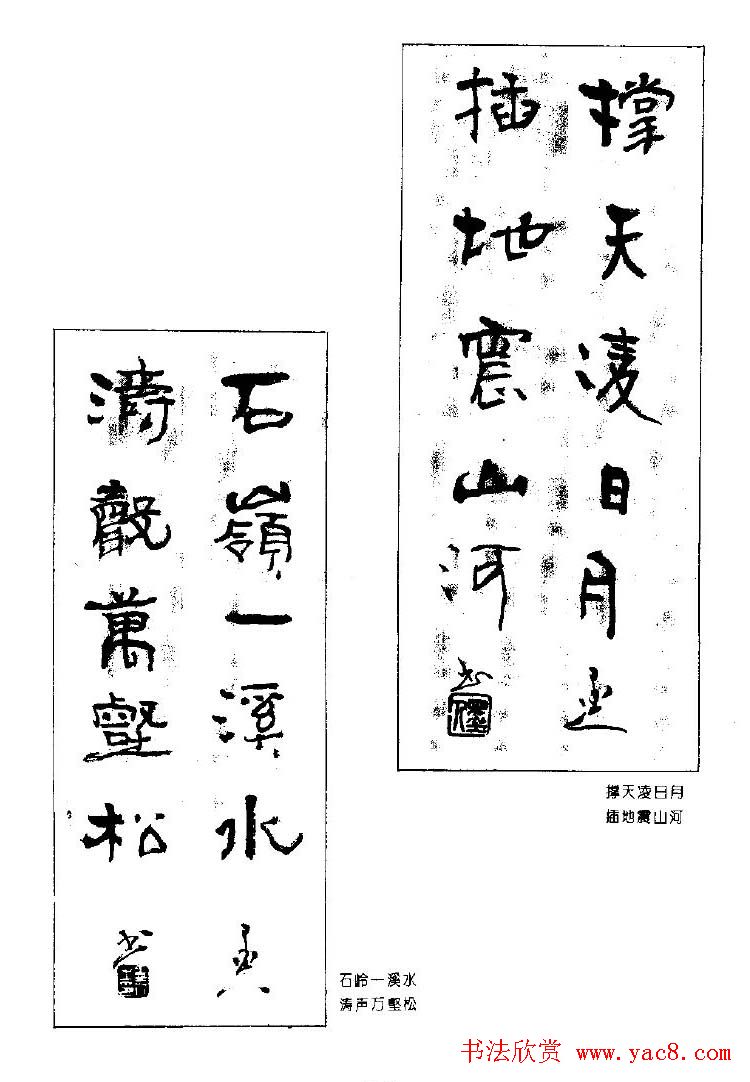 撑天凌日月
插地震山河
书
撑天凌日月
插地震山河
石嶺一溪水
濤聲萬壑松
书
石岭一溪水
涛声万壑松
书法欣赏 www.yac8.com